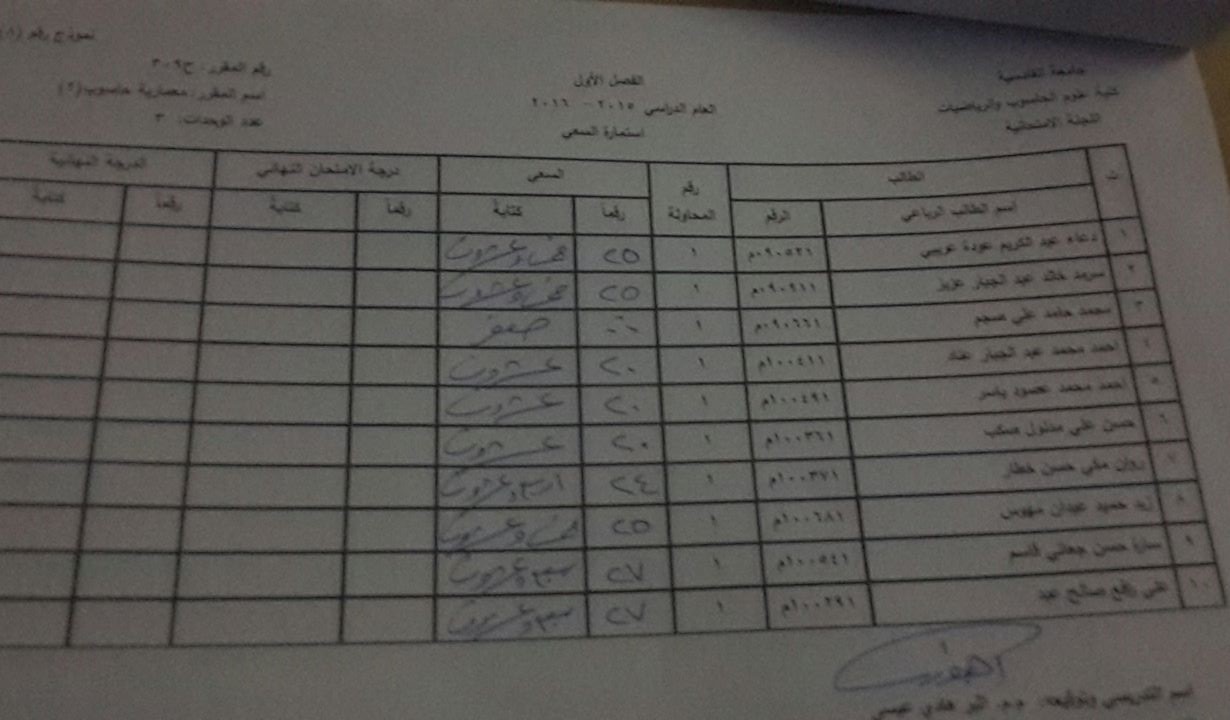 جامعة القادسية
كلية علوم الحاسوب والرياضيات
اللجنة الامتحانية
الفصل الأول
العام الدراسي ٢٠١٥ - ٢٠١٦
استمارة السعي
نموذج رقم (٨)
رقم المقرر: ح٣٠٩
اسم المقرر: معمارية حاسوب(٢)
عدد الوحدات: ٣
ت الطالب رقم المحاولة السعي درجة الامتحان النهائي الدرجة النهائية
اسم الطالب الرباعي الرقم رقماً كتابة رقماً كتابة رقماً كتابة
١ دعاء عبد الكريم عودة عريبي ١ ٢٥ خمس وعشرون
٢ سرمد خالد عبد الجبار عزيز ١ ٢٥ خمس وعشرون
٣ محمد حامد علي ١ صفر
٤ احمد محمد عبد الجبار عناد ١٠٠٤١١م ١ ٢٠ عشرون
٥ احمد محمد ياسر ١٠٠٤٩١م ١ ٢٠ عشرون
٦ حسن علي ١٠٠٣٦١م ١ ٢٠ عشرون
٧ روان مكي حسن خطار ١٠٠٣٧١م ١ ٢٤ اربع وعشرون
٨ زيد حميد عيدان ١٠٠٦٨١م ١ ٢٥ خمس وعشرون
٩ سارة حسن قاسم ١٠٠٥٤١م ١ ٢٧ سبع وعشرون
١٠ علي رافع صالح عبد ١٠٠٢٩١م ١ ٢٧ سبع وعشرون
اسم التدريسي وتوقيعه: م.م. هادي عيسى